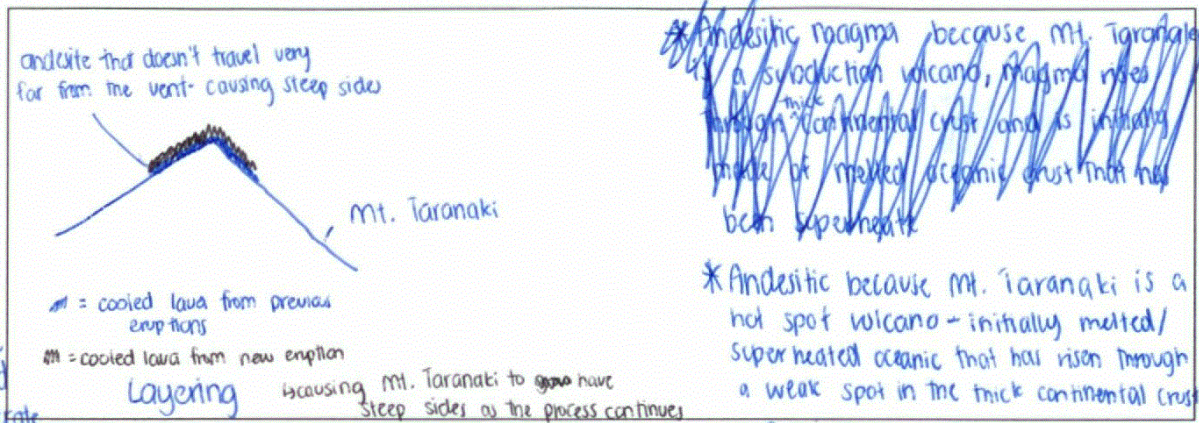 andesite that doesn't travel very
far from the vent - causing steep sides
Mt. Taranaki
= cooled lava from previous
eruptions
= cooled lava from new eruption
Layering
causing Mt. Taranaki to have
steep sides as the process continues
* Andesitic magma because Mt. Taranaki
is a subduction volcano, magma rises
through thick continental crust and is initially
made of melted oceanic crust that has
been superheate
* Andesitic because Mt. Taranaki is a
hot spot volcano - initially melted/
superheated oceanic that has risen through
a weak spot in the thick continental crust